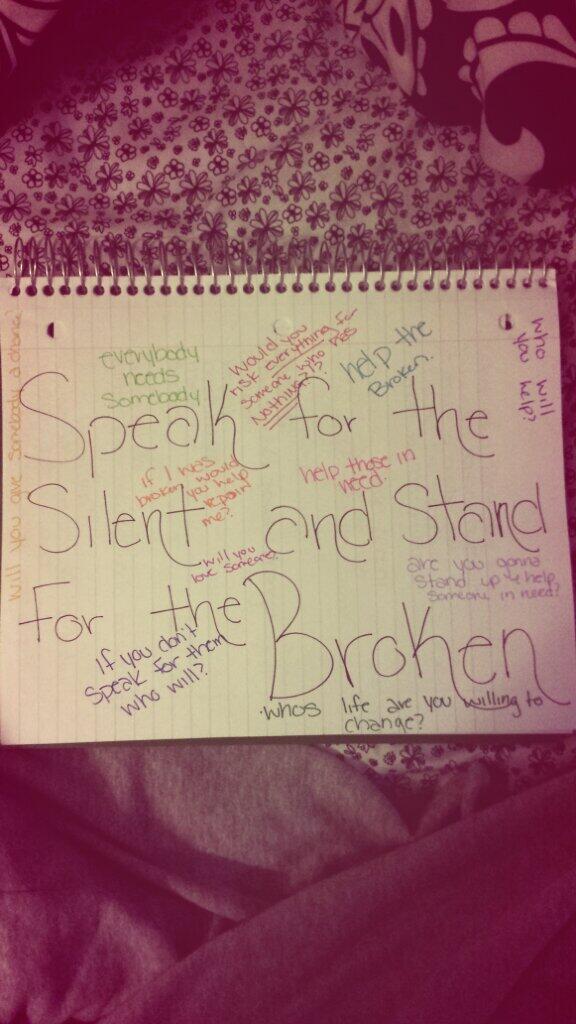 will you give somebody a chance?
everybody
needs
somebody
would you
risk everything for
someone who has
Nothing?!?
help the
Broken.
who will
you help?
Speak for the
if I was
broken would
you help
repair
me?
help those in
need.
Silent and Stand
will you
love someone?
are you gonna
stand up & help
someone in need?
for the Broken
If you don't
speak for them
who will?
whos life are you willing to
change?